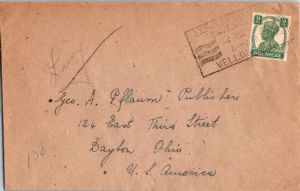 VELLO
INDIA POSTAGE
Geo. A. Pflaum Publisher
124 East Third Street
Dayton Ohio
U. S. America